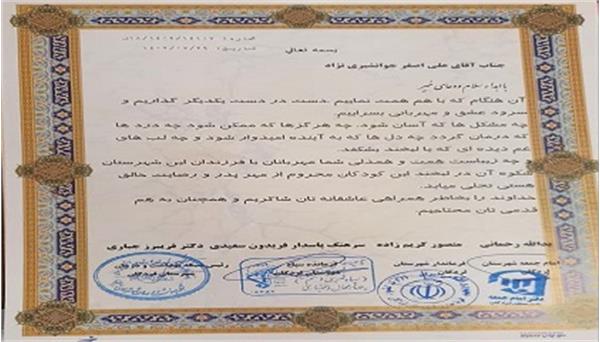 شماره: ۱۸/۱۴۰۲/۱۴۱۰۲
تاریخ: ۱۴۰۲/۰۷/۲۹
بسمه تعالی
جناب آقای علی اصغر جوانشیری نژاد
با اهداء سلام و دعای خیر
آن هنگام که با هم همت نماییم دست در دست یکدیگر گذاریم و
سرود عشق و مهربانی بسراییم.
چه مشکل ها که آسان شود، چه هرگزها که ممکن شود چه درد ها
که درمان گردد چه دل ها که به آینده امیدوار شود و چه لب های
غم دیده ای که با لبخند بشکفد.
و چه زیباست همت و همدلی شما مهربانان با فرزندان این شهرستان
شکوه آن در لبخند این کودکان محروم از مهر پدر و رضایت خالق
هستی تجلی میابد.
خداوند را بخاطر همراهی عاشقانه تان شاکریم و همچنان به هم
قدمی تان محتاجیم.
یدالله رحمانی منصور کریم زاده سرهنگ پاسدار فریدون سفیدی دکتر فریبرز جباری
امام جمعه شهرستان لردگان فرماندار شهرستان لردگان فرمانده سپاه
دفتر امام جمعه